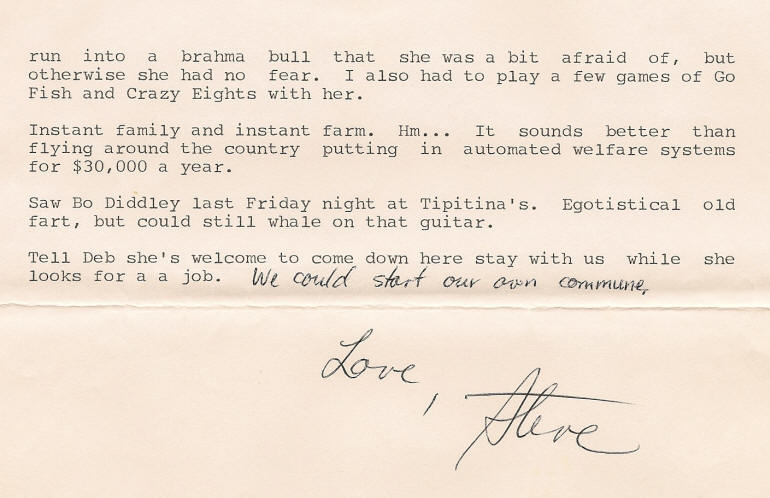 run into a brahma bull that she was a bit afraid of, but
otherwise she had no fear. I also had to play a few games of Go
Fish and Crazy Eights with her.
Instant family and instant farm. Hm... It sounds better than
flying around the country putting in automated welfare systems
for $30,000 a year.
Saw Bo Diddley last Friday night at Tipitina's. Egotistical old
fart, but could still whale on that guitar.
Tell Deb she's welcome to come down here stay with us while she
looks for a a job. We could start our own commune.
Love,
Steve